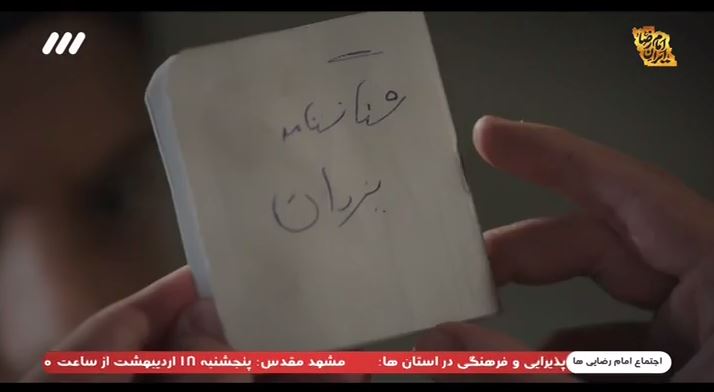 امام رضا
ایران
شناسنامه
یزدان
اجتماع امام رضایی ها
پذیرایی و فرهنگی در استان ها: مشهد مقدس: پنجشنبه ۱۸ اردیبهشت از ساعت ۰